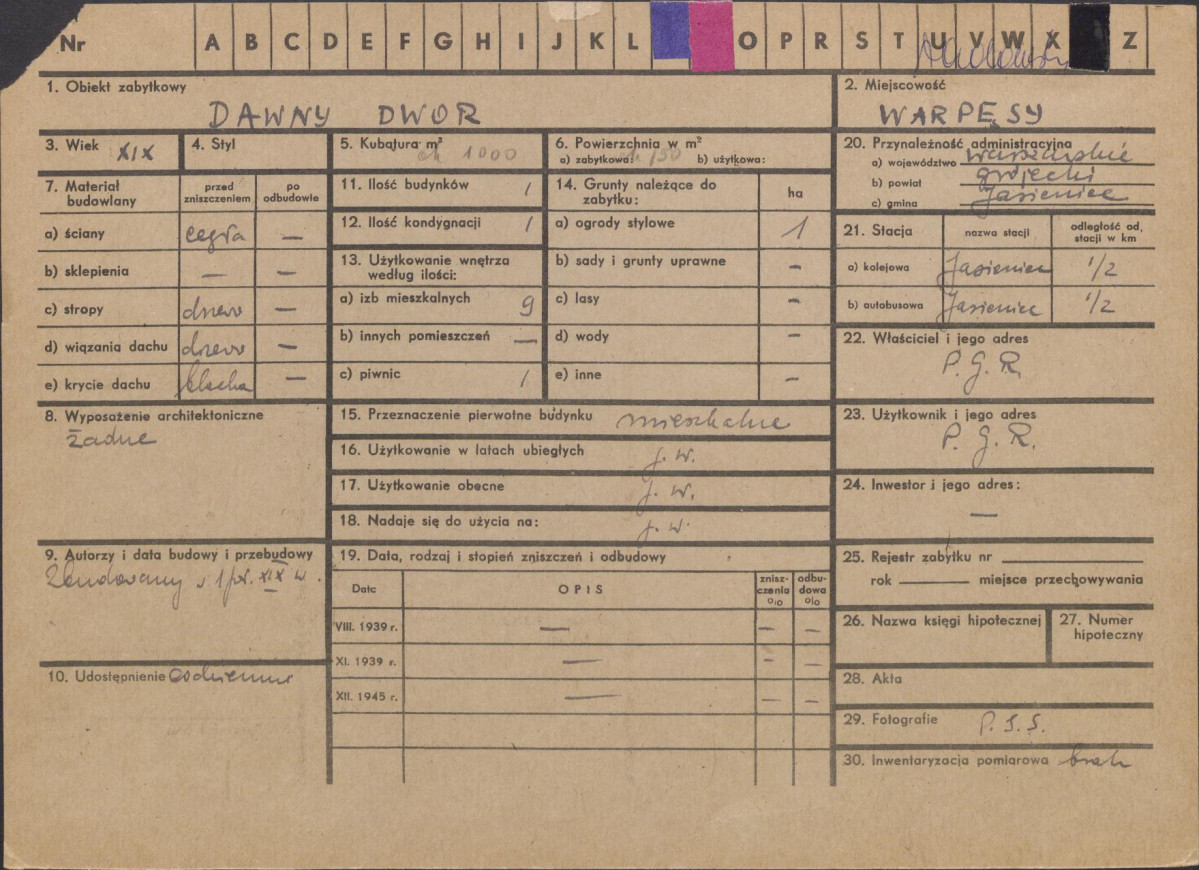 Nr A B C D E F G H I J K L O P R S T U V W X Z
1. Obiekt zabytkowy
DAWNY DWÓR
2. Miejscowość
WARPĘSY
3. Wiek XIX
4. Styl
5. Kubatura m³
ok 1000
6. Powierzchnia w m²
a) zabytkowa: 150 b) użytkowa:
20. Przynależność administracyjna
a) województwo warszawskie
b) powiat grójecki
c) gmina Jasieniec
7. Materiał budowlany
przed zniszczeniem
po odbudowie
a) ściany cegła —
b) sklepienia — —
c) stropy drzewo —
d) wiązania dachu drzewo —
e) krycie dachu blacha —
11. Ilość budynków 1
12. Ilość kondygnacji 1
13. Użytkowanie wnętrza
według ilości:
a) izb mieszkalnych 9
b) innych pomieszczeń —
c) piwnic 1
14. Grunty należące do
zabytku:
ha
a) ogrody stylowe 1
b) sady i grunty uprawne —
c) lasy —
d) wody —
e) inne —
21. Stacja
nazwa stacji
odległość od,
stacji w km
a) kolejowa Jasieniec 1/2
b) autobusowa Jasieniec 1/2
22. Właściciel i jego adres
P. G. R.
8. Wyposażenie architektoniczne
żadne
15. Przeznaczenie pierwotne budynku mieszkalne
16. Użytkowanie w latach ubiegłych j. w.
17. Użytkowanie obecne j. w.
18. Nadaje się do użycia na: j. w.
23. Użytkownik i jego adres
P. G. R.
24. Inwestor i jego adres:
—
9. Autorzy i data budowy i przebudowy
Zbudowany w 1 poł. XIX w.
10. Udostępnienie codziennie
19. Data, rodzaj i stopień zniszczeń i odbudowy
Data
OPIS
znisz-
czenia
o/o
odbu-
dowa
o/o
VIII. 1939 r. — — —
XI. 1939 r. — — —
XII. 1945 r. — — —
25. Rejestr zabytku nr
rok miejsce przechowywania
26. Nazwa księgi hipotecznej
27. Numer
hipoteczny
28. Akta
29. Fotografie P.I.S.
30. Inwentaryzacja pomiarowa brak